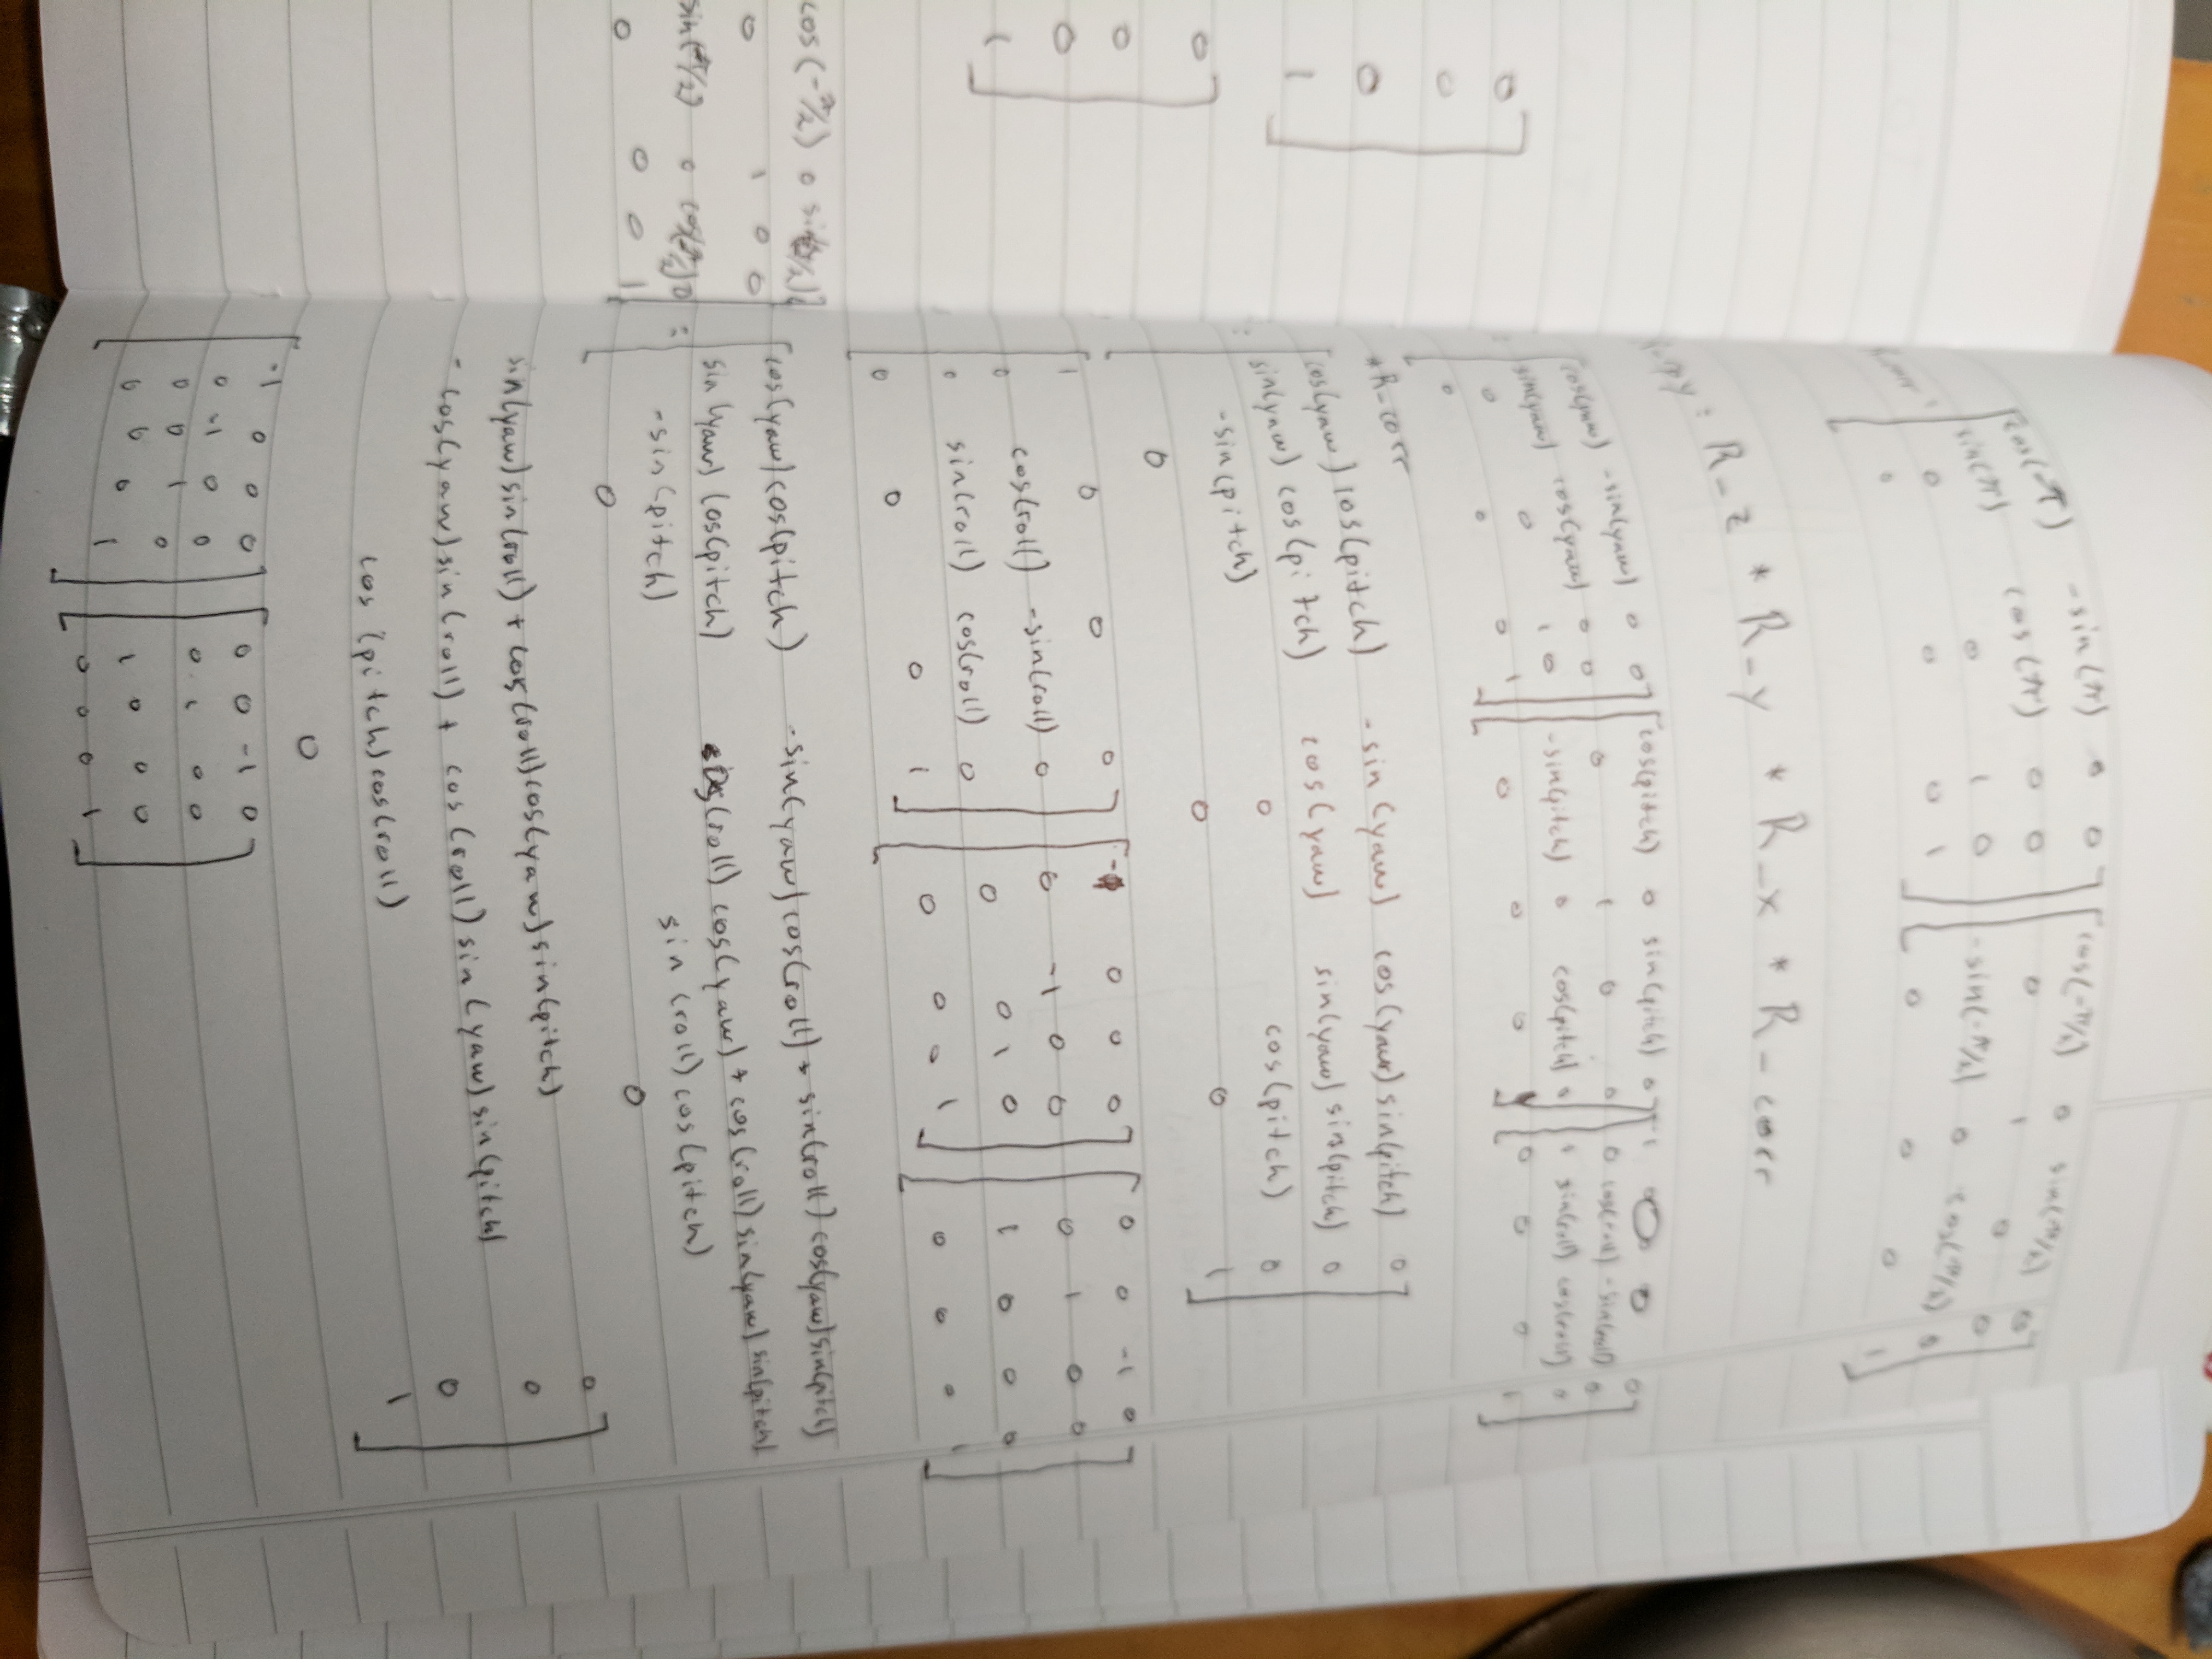 0
0
0
1
0
0
0
1
cos(-π/2) 0
0 1 0 0
0
0 0 0 1
cos(π) -sin(π) 0 0
sin(π) cos(π) 0 0
0 0 1 0
0 0 0 1
cos(-π/2) 0 sin(-π/2) 0
0 1 0 0
-sin(-π/2) 0 cos(-π/2) 0
0 0 0 1
R_z * R_y * R_x * R_corr
cos(yaw) -sin(yaw) 0 0
sin(yaw) cos(yaw) 0 0
0 0 1 0
0 0 0 1
cos(pitch) 0 sin(pitch) 0
0 1 0 0
-sin(pitch) 0 cos(pitch) 0
0 0 0 1
1 0 0 0
0 cos(roll) -sin(roll) 0
0 sin(roll) cos(roll) 0
0 0 0 1
*R_corr
cos(yaw) cos(pitch) -sin(yaw) cos(yaw) sin(pitch) 0
sin(yaw) cos(pitch) cos(yaw) sin(yaw) sin(pitch) 0
-sin(pitch) 0 cos(pitch) 0
0 0 0 1
1 0 0 0
0 cos(roll) -sin(roll) 0
0 sin(roll) cos(roll) 0
0 0 0 1
0 0 0
0 -1 0 0
0 0 1 0
0 0 0 1
0 0 -1 0
0 1 0 0
1 0 0 0
0 0 0 1
cos(yaw) cos(pitch) -sin(yaw) cos(roll) + sin(roll) cos(yaw) sin(pitch)
sin(yaw) cos(pitch) cos(roll) cos(yaw) + cos(roll) sin(yaw) sin(pitch)
-sin(pitch) sin(roll) cos(pitch)
0 0
sin(yaw) sin(roll) + cos(roll) cos(yaw) sin(pitch) 0
-cos(yaw) sin(roll) + cos(roll) sin(yaw) sin(pitch) 0
cos(pitch) cos(roll) 0
0 1
-1 0 0 0
0 -1 0 0
0 0 1 0
0 0 0 1
0 0 -1 0
0 1 0 0
1 0 0 0
0 0 0 1